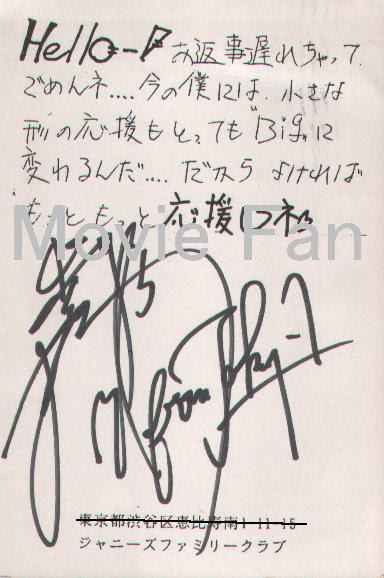 Hello-!? お返事遅れちゃって
ごめんネ....今の僕には、小さな
形の応援もとっても"Big"に
変わるんだ....だから よければ
もっと もっと 応援してネ!!
Movie Fan
from
東京都渋谷区恵比寿南1-11-15
ジャニーズファミリークラブ